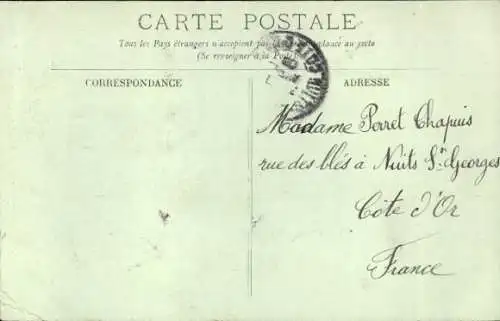 CARTE POSTALE
Tous les Pays étrangers n'acceptent pas la correspondance au recto
(Se renseigner à la Poste)
CORRESPONDANCE
ADRESSE
Madame Perret Chapuis
rue des blés à Nuits St Georges
Côte d'Or
France